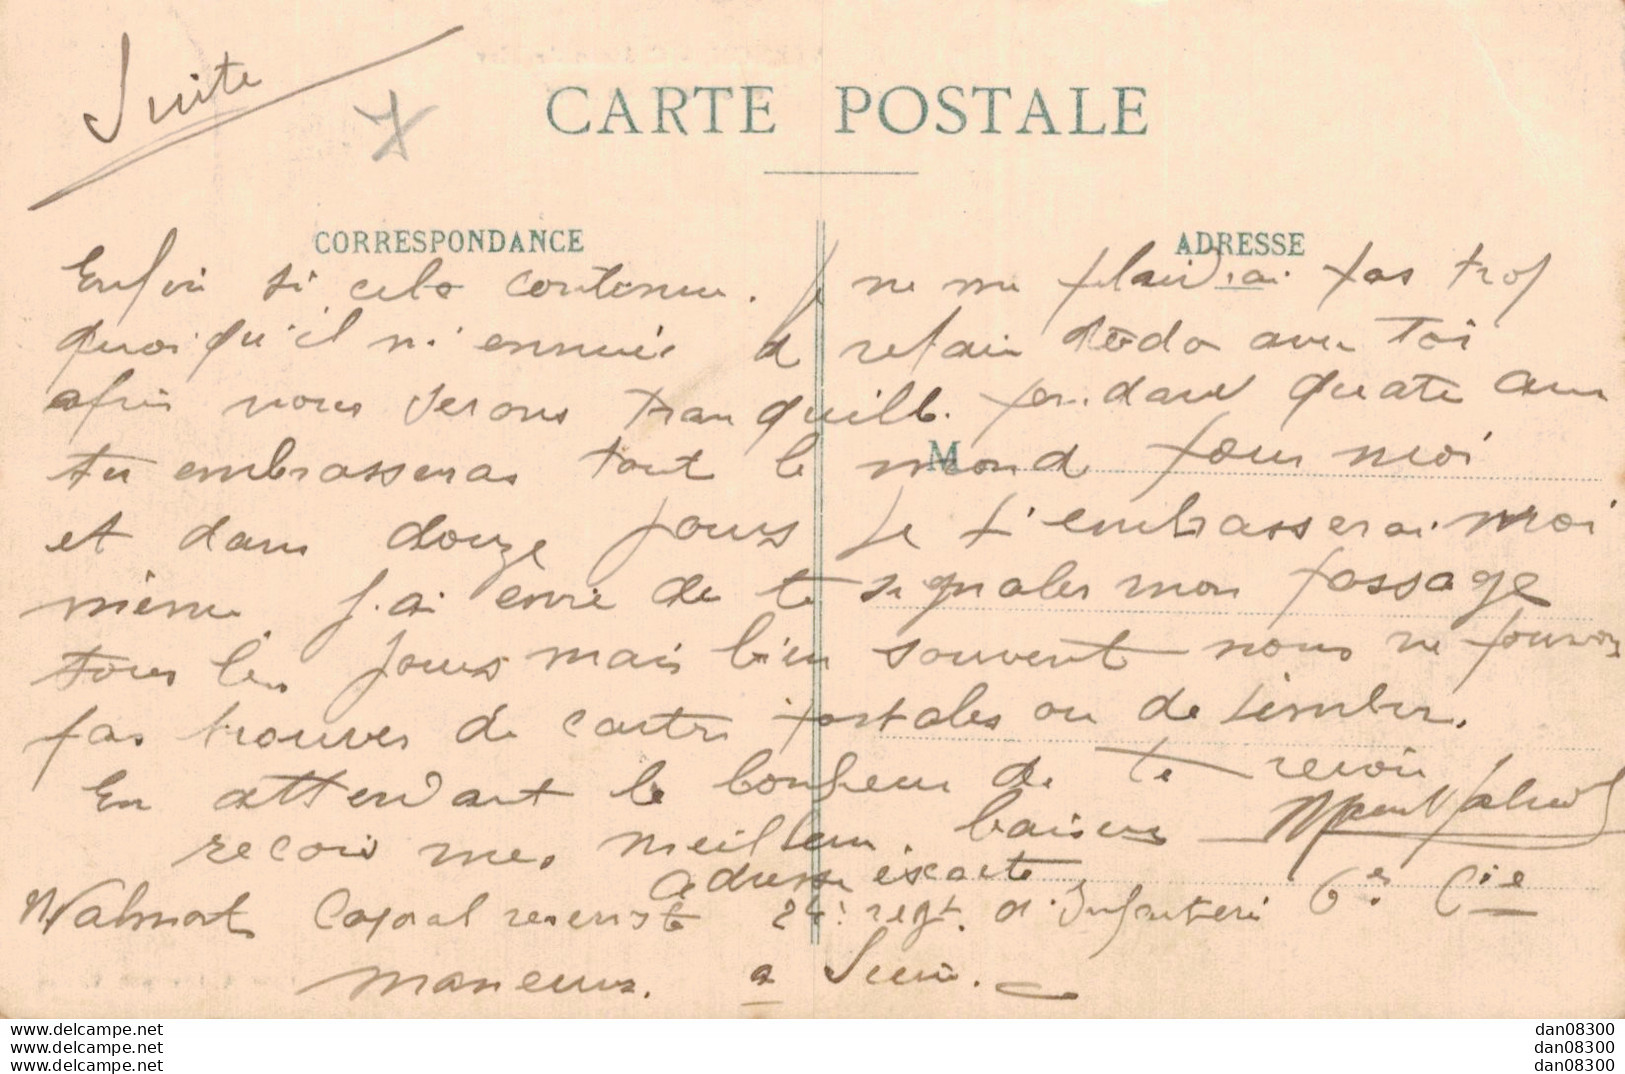 Suite
CARTE POSTALE
CORRESPONDANCE
ADRESSE
Enfin si cela continue. Je ne me plaindrai pas trop
quoiqu'il m'ennuie de refaire dodo avec toi
afin nous serons tranquille. pendant quatre ans
M
tu embrasseras tout le monde pour moi
et dans douze jours je t'embrasserai moi
même j'ai envie de te signaler mon passage
tous les jours mais bien souvent nous ne pouvons
pas trouver de cartes postales ou de timbres.
En attendant le bonheur de te revoir
recois mes meilleurs baisers
adresse exacte
Caporal reserviste 24e regt. d'Infanterie 6e Cie
manoeuvres. a suivre.
www.delcampe.net
www.delcampe.net
www.delcampe.net
dan08300
dan08300
dan08300